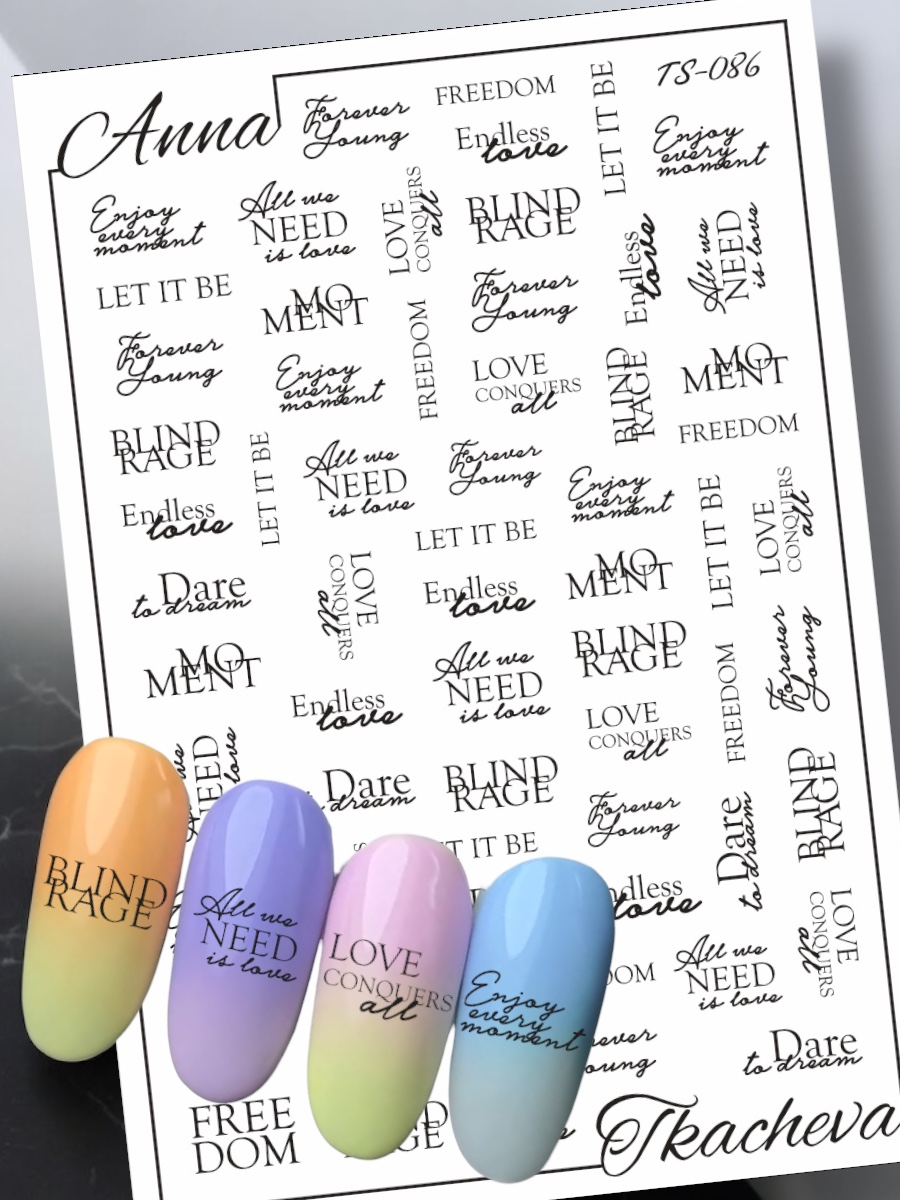 Anna
Forever
Young
FREEDOM
Endless
love
LET IT BE
TS-086
Enjoy
every
moment
Enjoy
every
moment
All we
NEED
is love
LOVE
CONQUERS
all
BLIND
RAGE
Endless
love
All we
NEED
is love
LET IT BE
MO
MENT
Forever
Young
Forever
Young
Enjoy
every
moment
FREEDOM
LOVE
CONQUERS
all
BLIND
RAGE
MO
MENT
FREEDOM
BLIND
RAGE
LET IT BE
All we
NEED
is love
Forever
Young
Enjoy
every
moment
LET IT BE
LOVE
CONQUERS
all
Endless
love
LET IT BE
Dare
to dream
LOVE
CONQUERS
all
Endless
love
MO
MENT
Forever
Young
MO
MENT
Endless
love
All we
NEED
is love
BLIND
RAGE
FREEDOM
LOVE
CONQUERS
all
NEED
love
Dare
dream
BLIND
RAGE
Forever
Young
Dare
to dream
BLIND
RAGE
IT BE
love
LOVE
CONQUERS
all
All we
NEED
is love
Dare
to dream
BLIND
RAGE
All we
NEED
is love
LOVE
CONQUERS
all
Enjoy
every
moment
FREE
DOM
Tkacheva